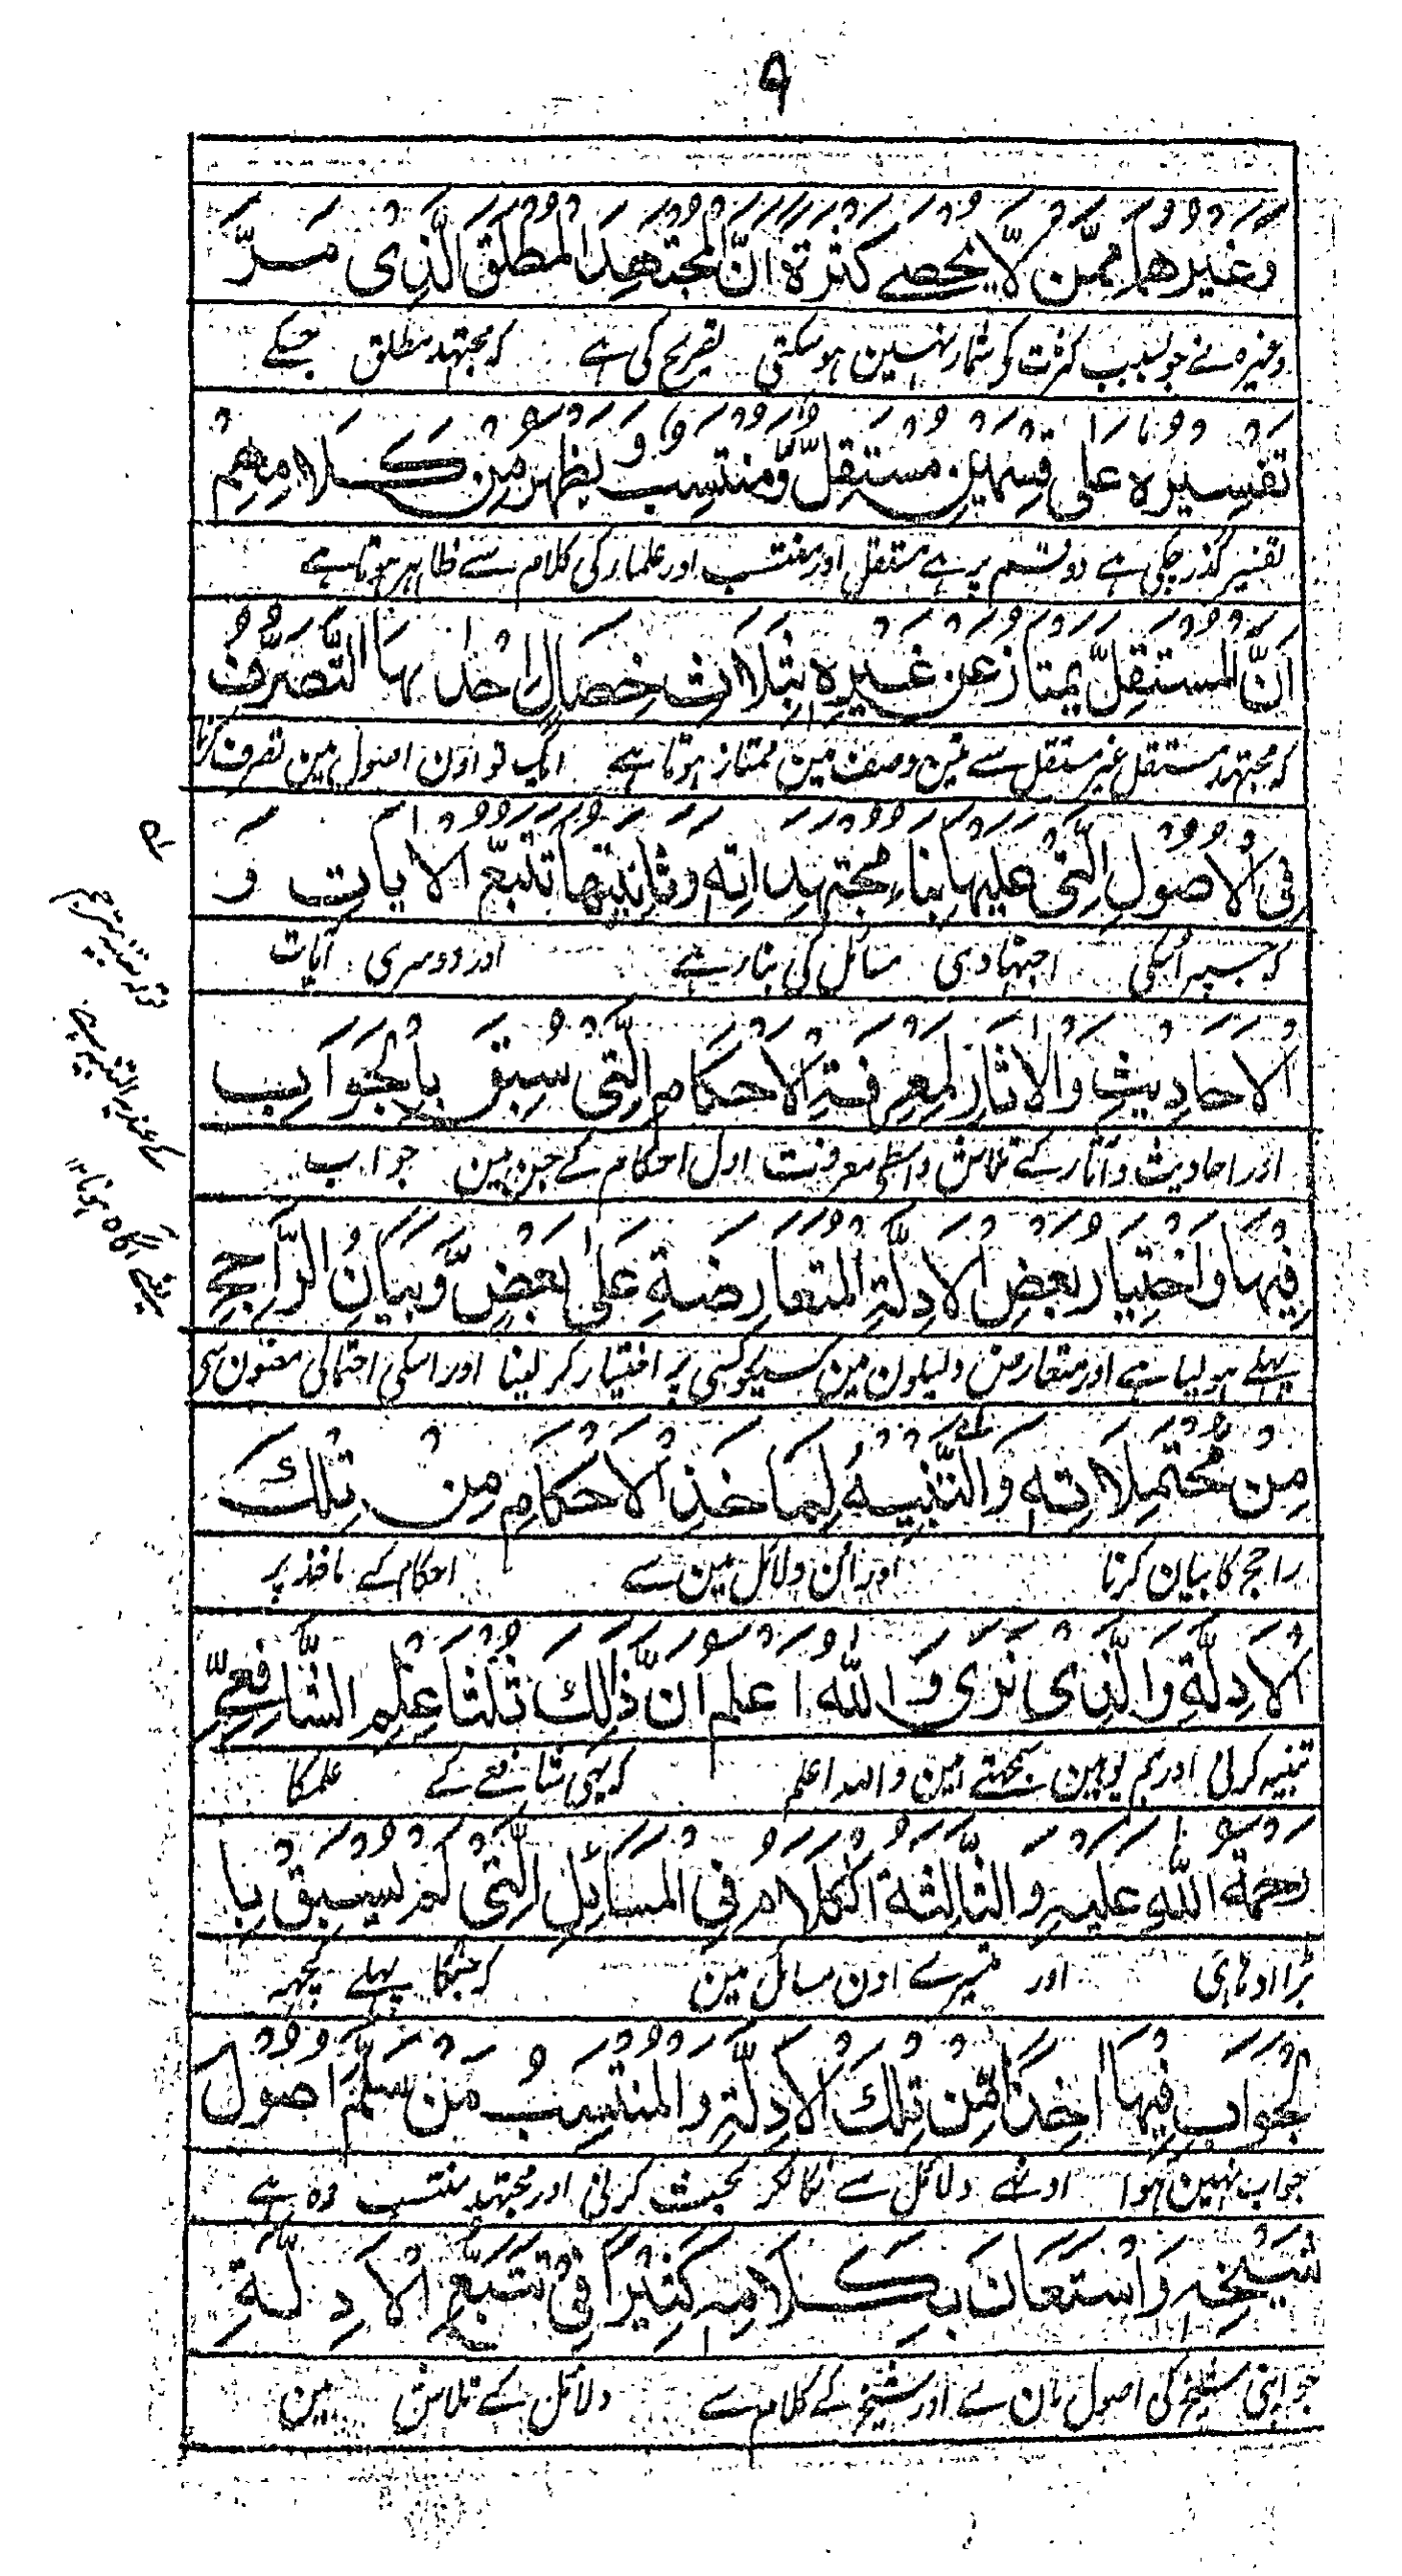 ۹
وَغَيْرِهِمَا مِمَّنْ لَّا يُحْصٰى كَثْرَةً اَنَّ الْمُجْتَهِدَ الْمُطْلَقَ الَّذِىْ مَرَّ
وغیرہ نے جو بسبب کثرت کو شمار نہین ہو سکتی تصریح کی ہے کہ مجتہد مطلق جسکے
تَفْسِيْرُهٗ عَلٰى قِسْمَيْنِ مُسْتَقِلٌّ وَّمُنْتَسِبٌ وَيَظْهَرُ مِنْ كَلَامِهِمْ
تفسیر گذر چکی ہے دو قسم پر ہے مستقل اور منتسب اور علماء کی کلام سے ظاہر ہوتا ہے
اَنَّ الْمُسْتَقِلَّ يَمْتَازُ عَنْ غَيْرِهٖ بِثَلَاثِ خِصَالٍ اِحْدٰىهَا التَّصَرُّفُ
کہ مجتہد مستقل غیر مستقل سے تین وصف مین ممتاز ہوتا ہے ایک تو اون اصول مین تصرف کرنا
فِى الْاُصُوْلِ الَّتِىْ عَلَيْهَا بِنَاءُ مُجْتَهِدَاتِهٖ وَثَانِيَتُهَا تَتَبُّعُ الْاٰيَاتِ وَ
کہ جسپر اُسکی اجتہادی مسائل کی بنا ہے اور دوسری آیات
الْاَحَادِيْثِ وَالْاٰثَارِ لِمَعْرِفَةِ الْاَحْكَامِ الَّتِىْ سُبِقَ بِالْجَوَابِ
اور احادیث و آثار کے تلاش واسطے معرفت اول احکام کے جن مین جواب
فِيْهَا وَاخْتِيَارُ بَعْضِ الْاَدِلَّةِ الْمُتَعَارِضَةِ عَلٰى بَعْضٍ وَّبَيَانُ الرَّاجِحِ
پہلے ہو لیا ہے اور متعارض دلیلون مین کسیکو کسی پر اختیار کر لینا اور اسکی احتمالی معنون سی
مِنْ مُّحْتَمِلَاتِهٖ وَالتَّنْبِيْهُ لِمَاخَذِ الْاَحْكَامِ مِنْ تِلْكَ
راجح کا بیان کرنا اور ان دلائل مین سے احکام کے ماخذ پر
الْاَدِلَّةِ وَالَّذِىْ نَرٰى وَاللّٰهُ اَعْلَمُ اَنَّ ذٰلِكَ ثُلُثَا عِلْمِ الشَّافِعِىِّ
تنبیہ کرنی اور ہم یوہین سمجھتے ہین واللہ اعلم کہ یہی شافعے کے علمکا
رَحْمَةُ اللّٰهِ عَلَيْهِ وَالثَّالِثَةُ الْكَلَامُ فِى الْمَسَائِلِ الَّتِىْ لَمْ يُسْبَقْ بِا
بڑا اور تیسرے اون مسائل مین کہ جنکا پہلے کچہہ
لْجَوَابِ فِيْهَا اَخْذًا مِّنْ تِلْكَ الْاَدِلَّةِ وَالْمُنْتَسِبُ مَنْ سَلَّمَ اُصُوْلَ
جواب نہین ہوا اونہے دلائل سے نکالکر بحث کرنی اور مجتہد منتسب وہ ہے
شَيْخِهٖ وَاسْتَعَانَ بِكَلَامِهٖ كَثِيْرًا فِىْ تَتَبُّعِ الْاَدِلَّةِ
جو اپنی شیخ کی اصول مان لے اور شیخ کے کلام سے دلائل کے تلاش مین